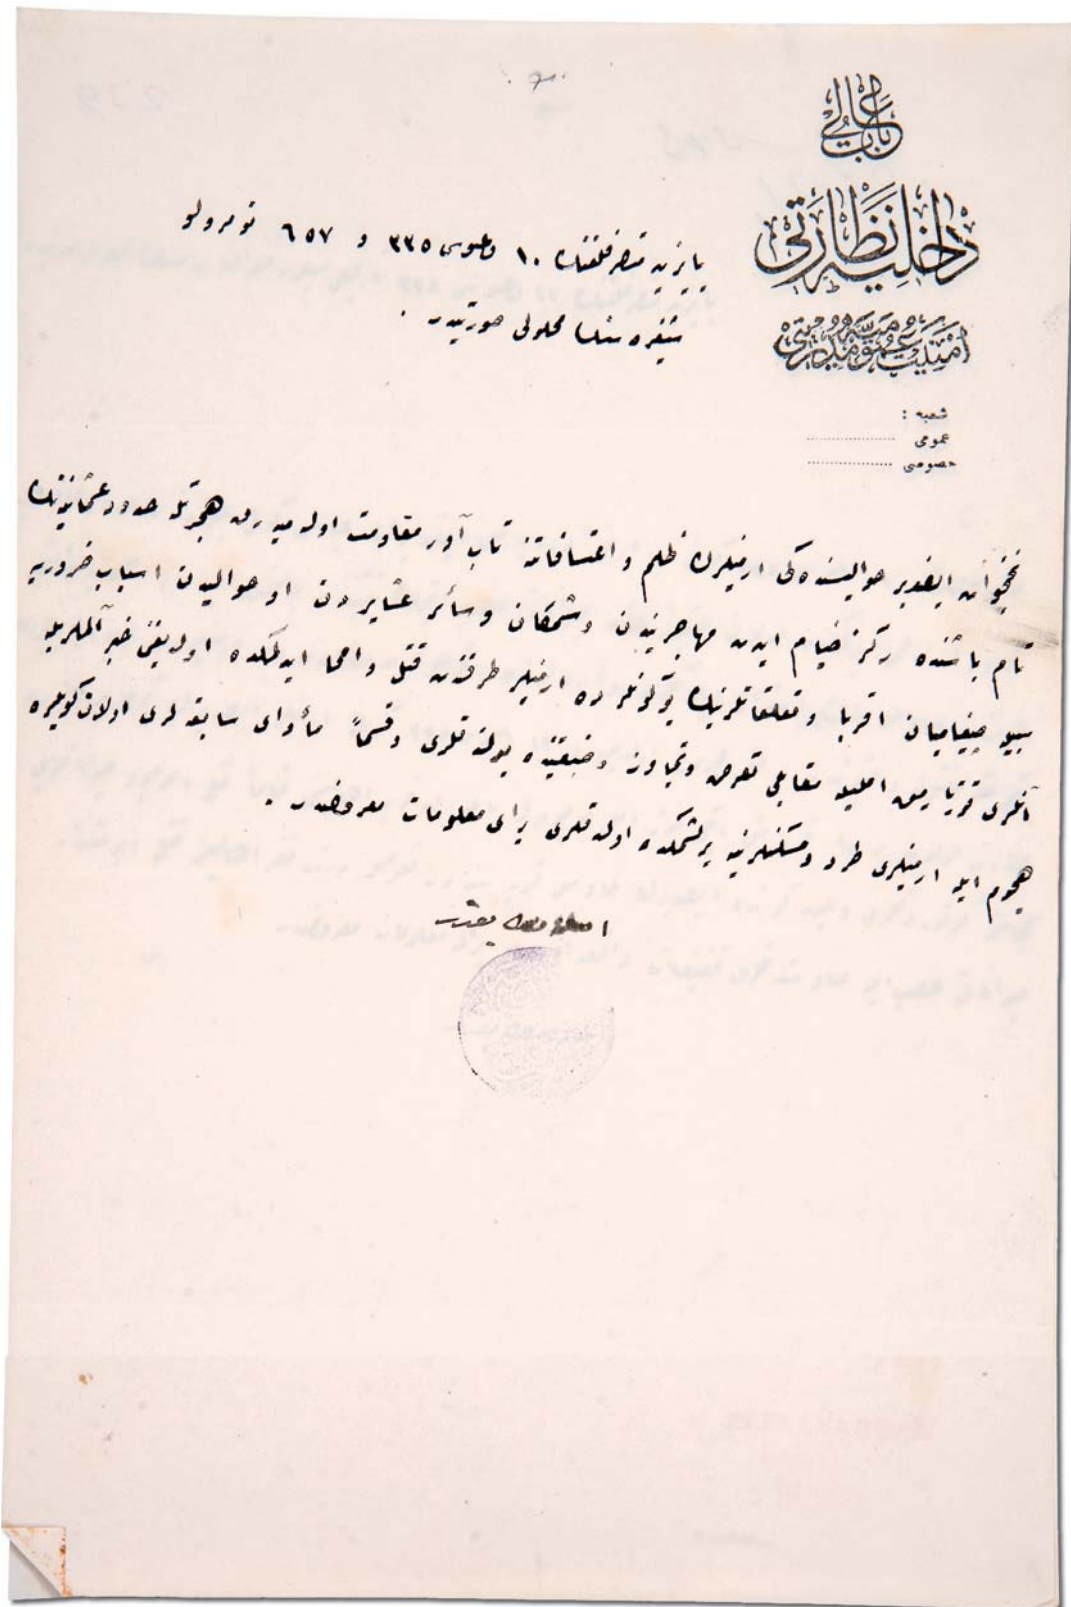 باب عالی
داخلیه نظارتی
امنیت عمومیه مدیریتی
شعبه :
عمومی
خصوصی
بایزید متصرفلغنك ١٠ اغستوس ٣٣٥ و ٦٥٧ نومرولو
شفره سنك محلولی صورتیدر .
نخجوان ایغدیر حوالیسنده كی ارمنیلرك ظلم و اعتسافاتنه تاب آور مقاومت اوله میه رق هجرتله حدود عثمانیه نك
تام باشنده ركز خیام ایدن مهاجریندن و شمكان و سائر عشایردن او حوالیدن اسباب ضروریه
اقربا و متعلقاتلرینك بوكونلرده ارمنیلر طرفندن قتل و امحا ایدلمكده اولدیغنی خبر آلملریله
تقریبا مقابلی تعرض و تجاوز و ضیقنده بولندقلری و قسماً مأوای سابقه لری اولان كویلره
هجوم ایله ارمنیلری طرد و مسكنلرینه یرلشمكده اولدقلری برای معلومات معروضدر .